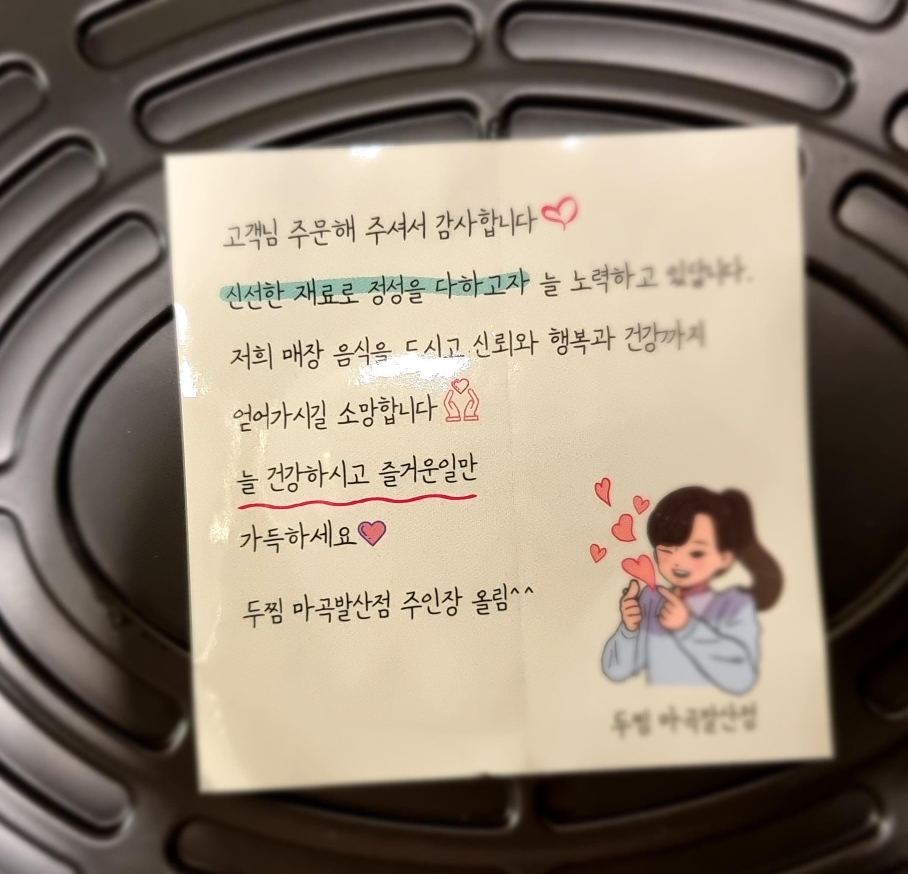 고객님 주문해 주셔서 감사합니다
신선한 재료로 정성을 다하고자 늘 노력하고 있답니다.
저희 매장 음식을 드시고 신뢰와 행복과 건강까지
얻어가시길 소망합니다
늘 건강하시고 즐거운일만
가득하세요
두찜 마곡발산점 주인장 올림^^
두찜 마곡발산점